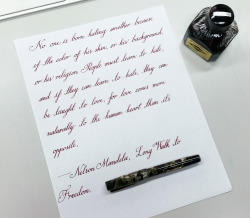 No one is born hating another because
of the color of his skin, or his background,
or his religion. People must learn to hate,
and if they can learn to hate, they can
be taught to love, for love comes more
naturally to the human heart than its
opposite.
—Nelson Mandela, Long Walk to
Freedom.